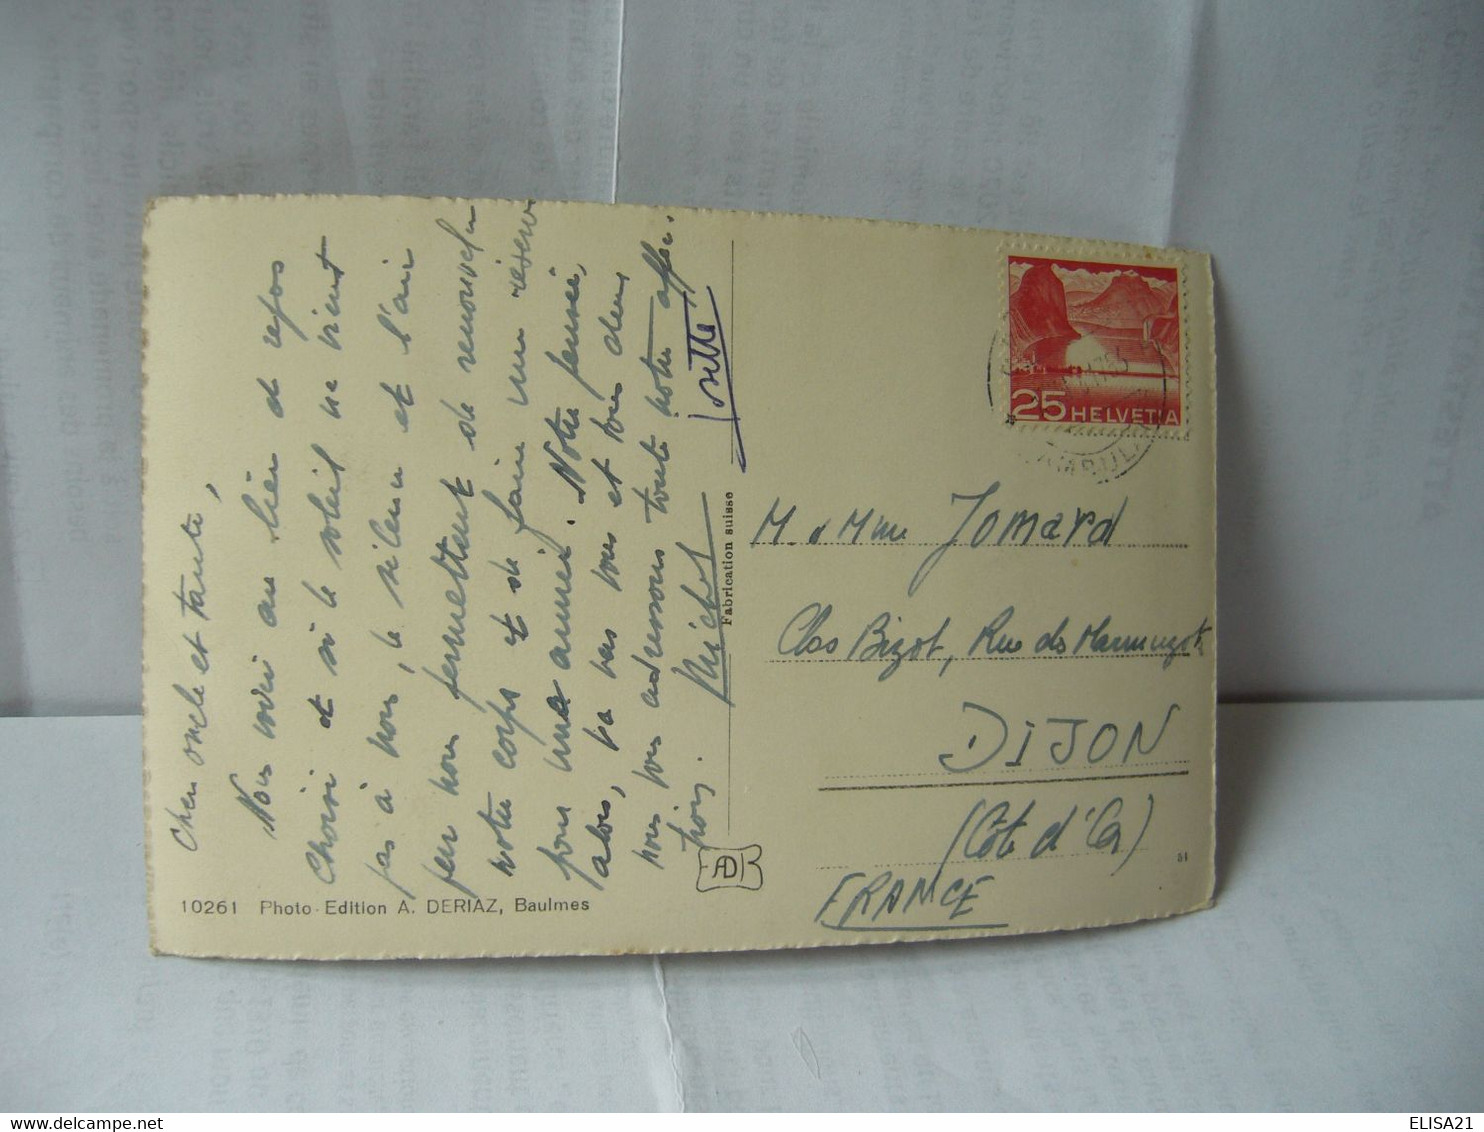 Cher oncle et tante,
Nous voici au lieu de repos
choisi et si le soleil ne vient
pas à nous, le silence et l'air
pur nous permettent de renouveler
notre corps et de faire une réserve
pour une année. Notre pensée,
alors, va vers vous et tous deux
nous vous adressons toute notre affec.
Michel
Josette
10261 Photo-Edition A. DERIAZ, Baulmes
Fabrication suisse
AD
25 HELVETIA
AMBULANT
M. & Mme Jomard
Clos Bizot, Rue des Marmuzots
DIJON
(Côte d'Or)
FRANCE
51
ELISA21